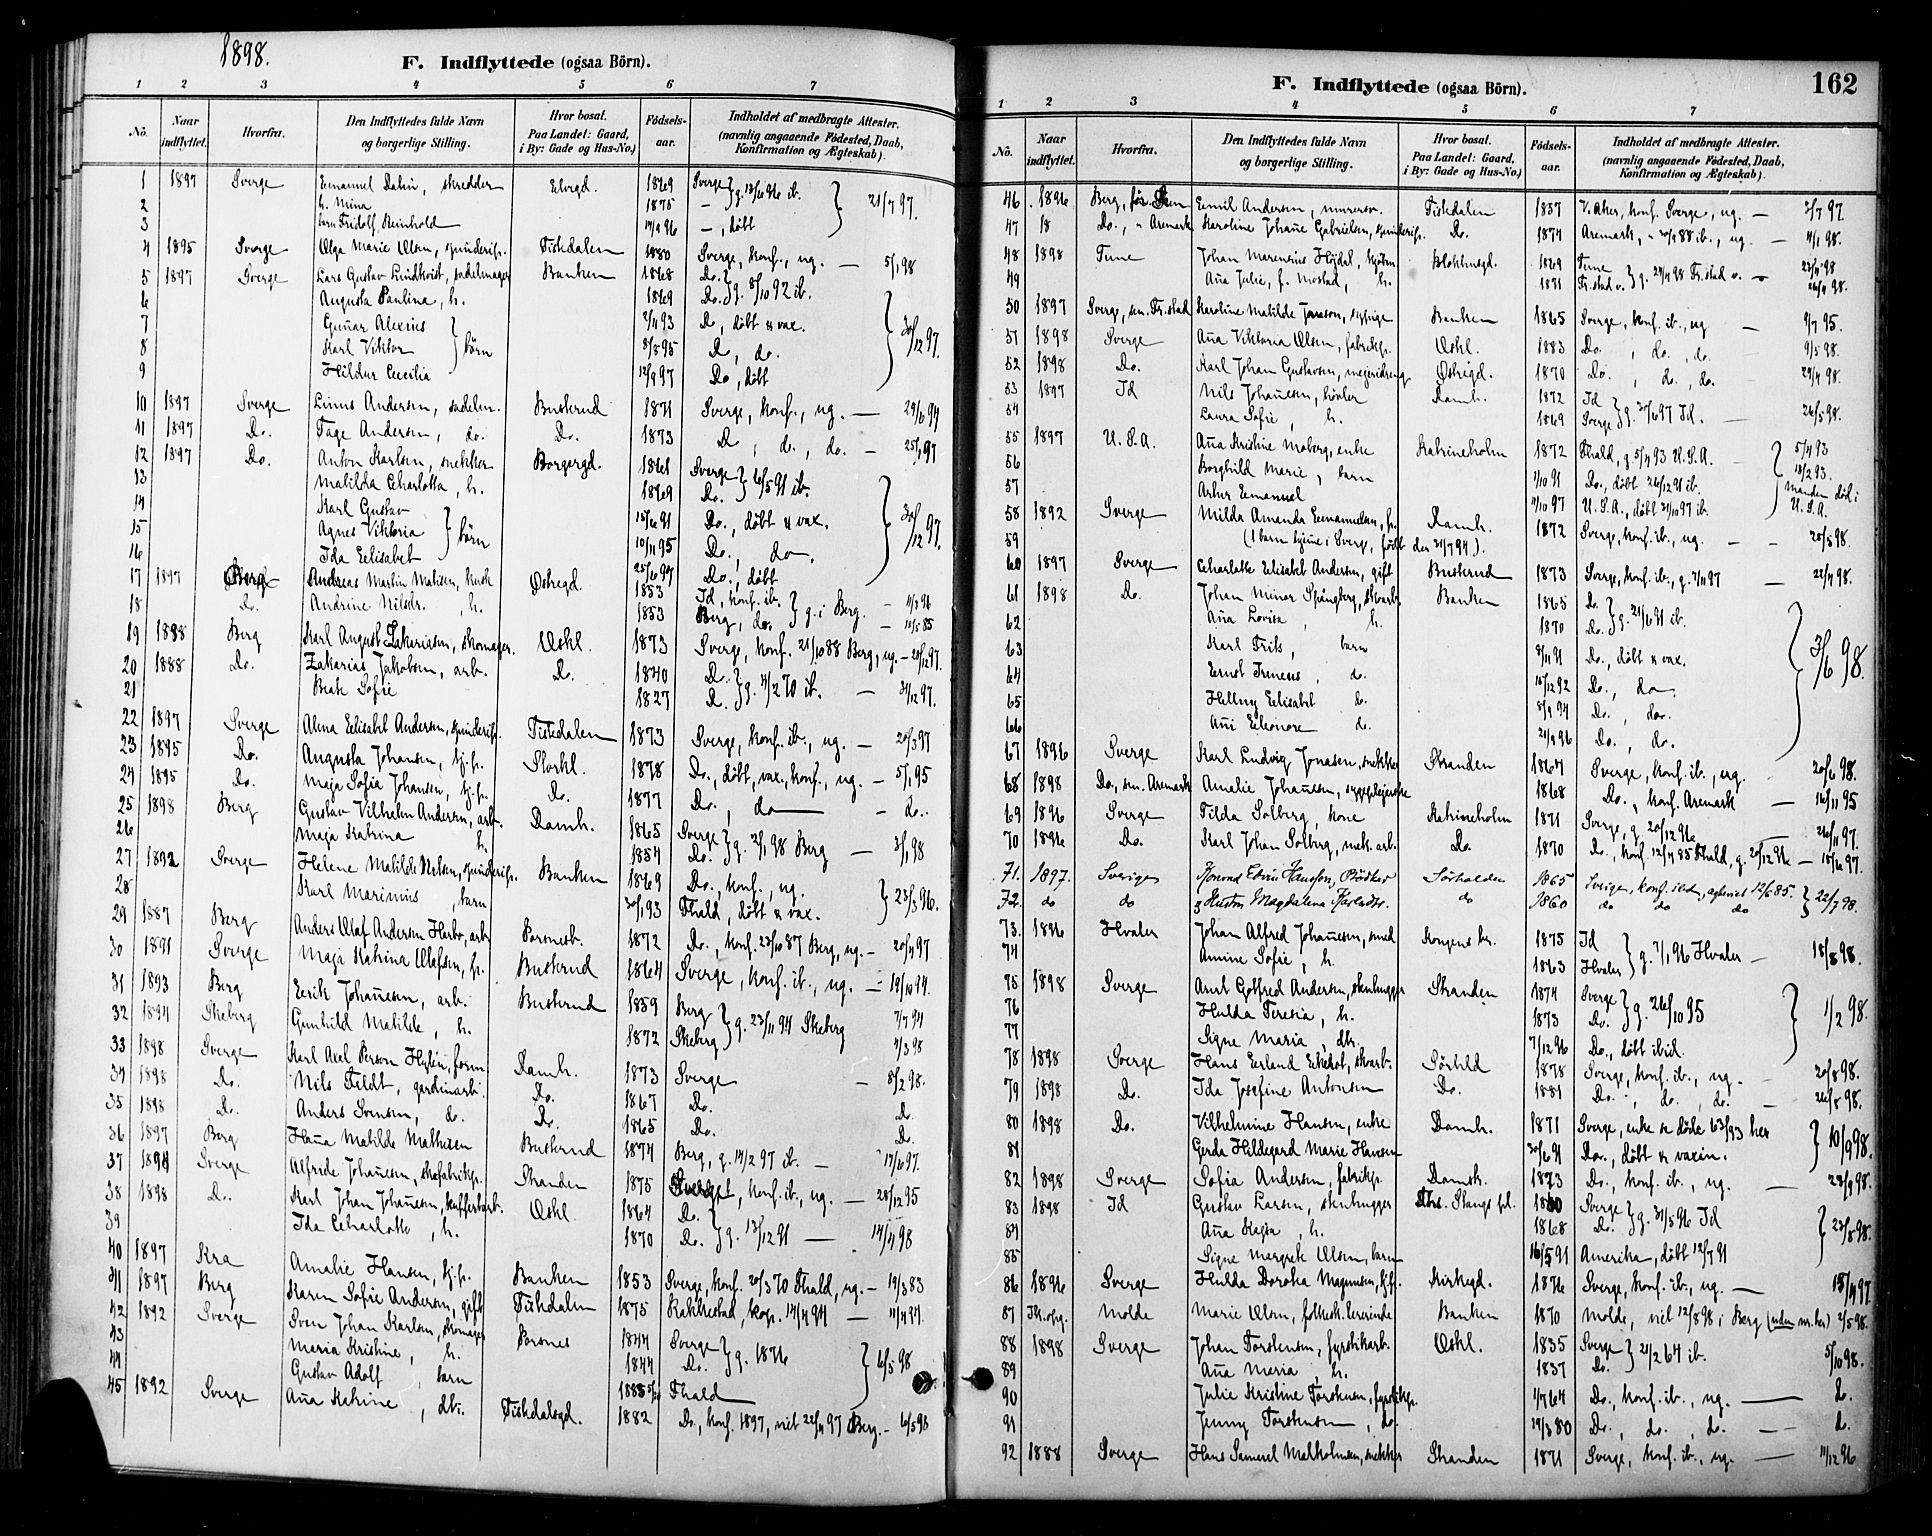 1898.
F. Indflyttede (ogsaa Börn).
1 2 3 4 5 6 7
No. Naar indflyttet. Hvorfra. Den Indflyttedes fulde Navn og borgerlige Stilling. Hvor bosat. Paa Landet: Gaard, i By: Gade og Hus-No.) Fødsels-aar. Indholdet af medbragte Attester. (navnlig angaaende Fødested, Daab, Konfirmation og Ægteskab).
1 1897 Sverge Emanuel Dalin, skredder Elvegd. 1869 Sverge } g. 13/10 96 ib. } 21/7 97.
2 h. Mina 1875 –
3 barn Fridolf Reinhold 14/9 96 –, døbt
4 1895 Sverge Olga Marie Olsen, Tistedalen 1880 Sverge, konf., ug. — 5/1 98
5 1897 Sverge Lars Gustav Lindkvist, sadelmager Banken 1868 Do. } g. 8/10 92 ib.
6 Augusta Paulina, h. 1869 Do.
7 Gunar Alexius } børn 2/11 93 Do, døbt & vax. } 30/12 97.
8 Karl Viktor 8/8 95 Do, do.
9 Hildur Cecilia 12/9 97 Do, døbt
10 1897 Sverge Linus Andersen, sadelm. Buskrud 1871 Sverge, konf., ug. — 29/6 94
11 1897 Do. Tage Andersen, do. Do. 1873 Do, do, do. — 25/1 97
12 1897 Do. Anton Karlsen, snekker Borgergd. 1861 Sverge } 6/5 91 ib.
13 Matilda Charlotta, h. 1869 Do.
14 Karl Gustav } børn 15/6 91 Do., døbt & vax. } 30/12 97.
15 Agnes Viktoria 10/11 95 Do., do.
16 Ida Elisabet 25/6 97 Do., døbt
17 1897 Berg Andreas Martin Matisen, kusk Østregd. 1853 Id, konf. ib. } g. i Berg. – 11/3 96
18 Do. Andrine Nilsdr., h. 1853 Berg, do. – 10/5 85
19 1888 Berg Karl August Zakariasen, skomager. Oskl. 1873 Sverge, konf. 21/10 88 Berg, ug. – 20/12 97.
20 1888 Do. Zakarias Jakobsen, arb. Do. 1840 Do. } g. 4/2 70 ib. — 31/12 97.
21 Beate Sofie 1827 Do.
22 1897 Sverge Alma Elisabet Andersen, Tistedalen 1873 Sverge, konf. ib., ug. — 20/3 97
23 1895 Do. Augusta Johansen, tj.p. Storkl. 1878 Do., døbt, vax., konf., ug. – 5/1 95
24 1895 Do. Maja Sofia Johansen, tj.p. Do. 1877 Do., do — – do.
25 1898 Berg Gustav Vilhelm Andersen, arb. Damh. 1865 Sverge } g. 2/1 98 Berg — 3/1 98
26 Maja Katrina h. 1854 Do.
27 1892 Sverge Helene Matilde Nilsen, Banken 1869 Do., konf., ug. } 23/3 96.
28 Karl Marinius, barn 30/1 93 Fhald, døbt & vax.
29 1887 Berg Anders Olaf Andersen Harbo, arb. Porsnes. 1872 Do., konf. 23/10 87 Berg, ug. – 20/4 97
30 1891 Sverge Maja Katrina Olafsen, fp. Buskrud 1864 Sverge, konf. ib., ug. – 19/10 94.
31 1893 Berg Eerik Johansen, arb. Buskrud 1859 Berg } g. 23/11 94 Skeberg 7/7 94
32 1894 Skeberg Gunhild Matilde, h. 1872 Skeberg 4/3 98
33 1898 Sverge Karl Axel Person Hylén, form. Damh. 1873 Sverge — 8/2 98.
34 1898 Do. Nils Feldt, gardinarb. Do. 1867 Do. Do.
35 1898 Do. Anders Svensen, do. Do. 1865 Do. Do.
36 1897 Berg Hana Matilde Mathisen Buskrud 1874 Berg, g. 14/2 97 ib. — 17/6 97.
37 1894 Sverge Alfride Johansen, skofabrikp. Stranden 1875 Sverge, konf. ib., ug. — 28/12 95
38 1898 Do. Karl Johan Johansen, Oskl. 1864 Do. } g. 13/12 91 — 14/4 98
39 Ida Charlotte, h. 1870 Do.
40 1897 Kra Amalie Hansen, tj.p. Banken 1853 Sverge, konf. 20/3 70 Fhald, ug. – 19/3 83
41 1897 Berg Karen Sofie Andersen, gift Tistedalen 1875 Rakkestad, kop. 14/4 94 — 11/4 94.
42 1892 Sverge Sven Johan Karlsen, skomager Porsnes 1844 Sverge } g. 1876 } 6/5 98
43 Maria Kristine, h. 1844 Do.
44 Gustav Adolf, barn 1885 Fhald
45 1892 Sverge Ana Katrine, dtr. Tistedalsgd. 1882 Do, konf. 1897, viet 22/4 97 Berg. – 6/5 98
F. Indflyttede (ogsaa Börn). 162
1 2 3 4 5 6 7
No. Naar indflyttet. Hvorfra. Den Indflyttedes fulde Navn og borgerlige Stilling. Hvor bosat. Paa Landet: Gaard, i By: Gade og Hus-No.) Fødsels-aar. Indholdet af medbragte Attester. (navnlig angaaende Fødested, Daab, Konfirmation og Ægteskab).
46 1896 Berg, før Emil Andersen, murersv. Tistedalen 1837 V. Aker, konf. Sverge, ug. — 2/7 97.
47 18 Do., " Aremark Karoline Johane Gabrielsen, Do. 1874 Aremark, " 30/9 88 ib., ug. — 4/1 98.
48 1898 Tune Johan Marensius Højdal, Blokhusgd. 1869 Tune } g. 24/4 98 Fr.stad v. — 23/4 98
49 Ana Julie, f. Mostad, h. 1871 Fr.stad v. 26/4 98.
50 1897 Sverge, sen. Fr.stad Karoline Matilde Jonsson, sypige Banken 1865 Sverge, konf. ib., ug — 9/7 95.
51 1898 Sverge Ana Viktoria Olsen, fabrikp. Oskl. 1883 Do., do, do. 9/5 98.
52 1898 Do. Karl Johan Gustavsen, mejeridreng Østregd. 1870 Do., do., do. 29/4 98.
53 1897 Id Nils Johansen, Damh. 1872 Id } g. 27/6 97 Id. — 26/5 98.
54 Laura Sofie, h. 1869 Sverge
55 1897 U.S.A. Ana Kristine Moberg, enke Katrineholm 1872 Fhald, g 5/4 93 U.S.A. — } 5/4 93
56 Borghild Marie, barn 1/10 91 Do., døbt 26/12 91 ib. 18/2 93.
57 Artur Emanuel 4/10 97 U.S.A., døbt 31/10 97 ib. Manden død i U.S.A.
58 1892 Sverge Milda Amanda Emanuelsen, fp. Damh. 1872 Sverge, konf. ib., ug. — – 20/5 98.
59 (1 barn hjeme i Sverge, født den 21/7 94).
60 1897 Sverge Charlotte Elisabet Andersen, gift Buskrud 1873 Sverge, konf. ib., g. 7/11 97 — 22/4 98.
61 1898 Do. Johan Minor Spångberg, skoarb. Banken 1865 Do. } g. 21/6 91 ib.
62 Ana Lovisa, h. 1870 Do.
63 Karl Frits, barn 9/11 91 Do., døbt & vax. } 3/6 98.
64 Ernst Ireneus, do. 15/12 92 Do., do.
65 Hellny Elisabet do. 8/9 94 Do., do.
66 Ani Eleonore do. 21/9 96 Do., do.
67 1896 Sverge Karl Ludvig Jonasen, snekker Stranden 1867 Sverge, konf. ib., ug. – 20/6 98.
68 1898 Do., sen. Aremark Amalie Johansen, sygeplejerske 1868 Do., konf. Aremark — 16/11 95
69 1896 Sverge Tilda Solberg, kone Katrineholm 1871 Sverge, g. 20/12 96 — 26/11 97.
70 1896 Do. Karl Johan Solberg, mek. arb. Do. 1870 Do., konf. 12/4 85 Fhald, g. 20/12 96 — 15/6 97.
71. 1897. Sverige Konrad Edvin Hansson, Bødker Sørhalden 1865 Sverige, konf. ibd., 12/6 85. } 22/7 98.
72. do do Hustru Magdalena Karlsdtr. do 1860 do do do
73. 1896 Hvaler Johan Alfred Johansen, smed Kongens br. 1875 Id } g. 7/1 96 Hvaler — 18/8 98.
74 Amine Sofie, h. 1863 Hvaler
75 1898 Sverge Arvid Gotfred Andersen, stenhugger Stranden 1874 Sverge } g. 26/10 95 } 1/2 98.
76 Hulda Teresia, h. 1873 Do.
77 Signe Maria, dtr. 7/12 96 Do., døbt ibid.
78 1898 Sverge Hans Erland Ekekot, skoarb. Sørhld 1878 Sverge, konf. ib., ug. — 20/8 98.
79 1898 Do. Ida Josefine Antonsen Do. 1881 Do., do, do. — 26/8 98.
80 1898 Do. Vilhelmine Hansen, enke Damh. 1871 Sverge, enke e. døde 63/93 her } 10/9 98.
81 Gerda Hildegard Marie Hansen 30/6 91 Do., døbt & vaxin.
82 1898 Sverge Sofia Andersen, fabrikp. Damst. 1873 Do., konf. ib., ug. — 23/9 98.
83 1898 Id Gustav Larsen, stenhugger Stangs pl. 1860 Sverge } g. 31/5 96 Id } 23/8 98.
84 Ana Kajsa, h. 1868 Do.
85 Signe Margrete Olsen, barn 16/5 91 Amerika, døbt 12/7 91
86 1896 Sverge Hulda Dorotea Magnusen, tj.p. Kirkegd. 1876 Sverge, konf. ib., ug. — 15/4 97.
87 Molde Marie Olsen, folkesk. lærerinde Banken 1870 Molde, viet 12/8 98 i Berg (uden nr. her) 2/5 98.
88 1898 Sverge Johan Torstensen, fyrstikarb. Oskl. 1835 Sverge } 21/2 64 ib. 5/10 98.
89 Ana Maria, h. 1837 Do.
90 Julie Kristine Torstensen, fyrstikp. 1/7 64 Do., konf. ib., ug. — do.
91 Jenny Torstensen, do. 19/3 80 Do., do., do. — do.
92 1888 Sverge Hans Samuel Malkolmsen, snekker Stranden 1871 Sverge, konf. ib., ug. — 11/12 96